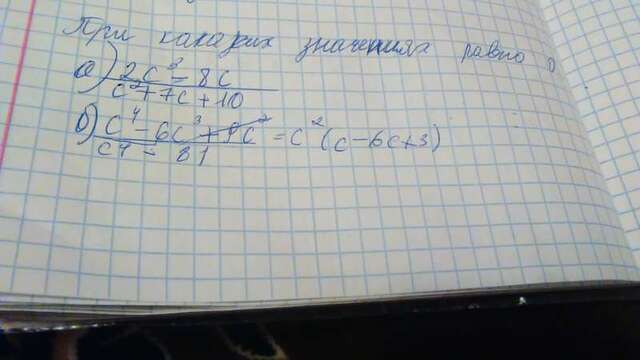 При каких значениях равно 0
а) 2c³ - 8c / c² + 7c + 10
б) c⁴ - 6c³ + 9c² / c⁴ - 81 = c² (c - 6c + 3)